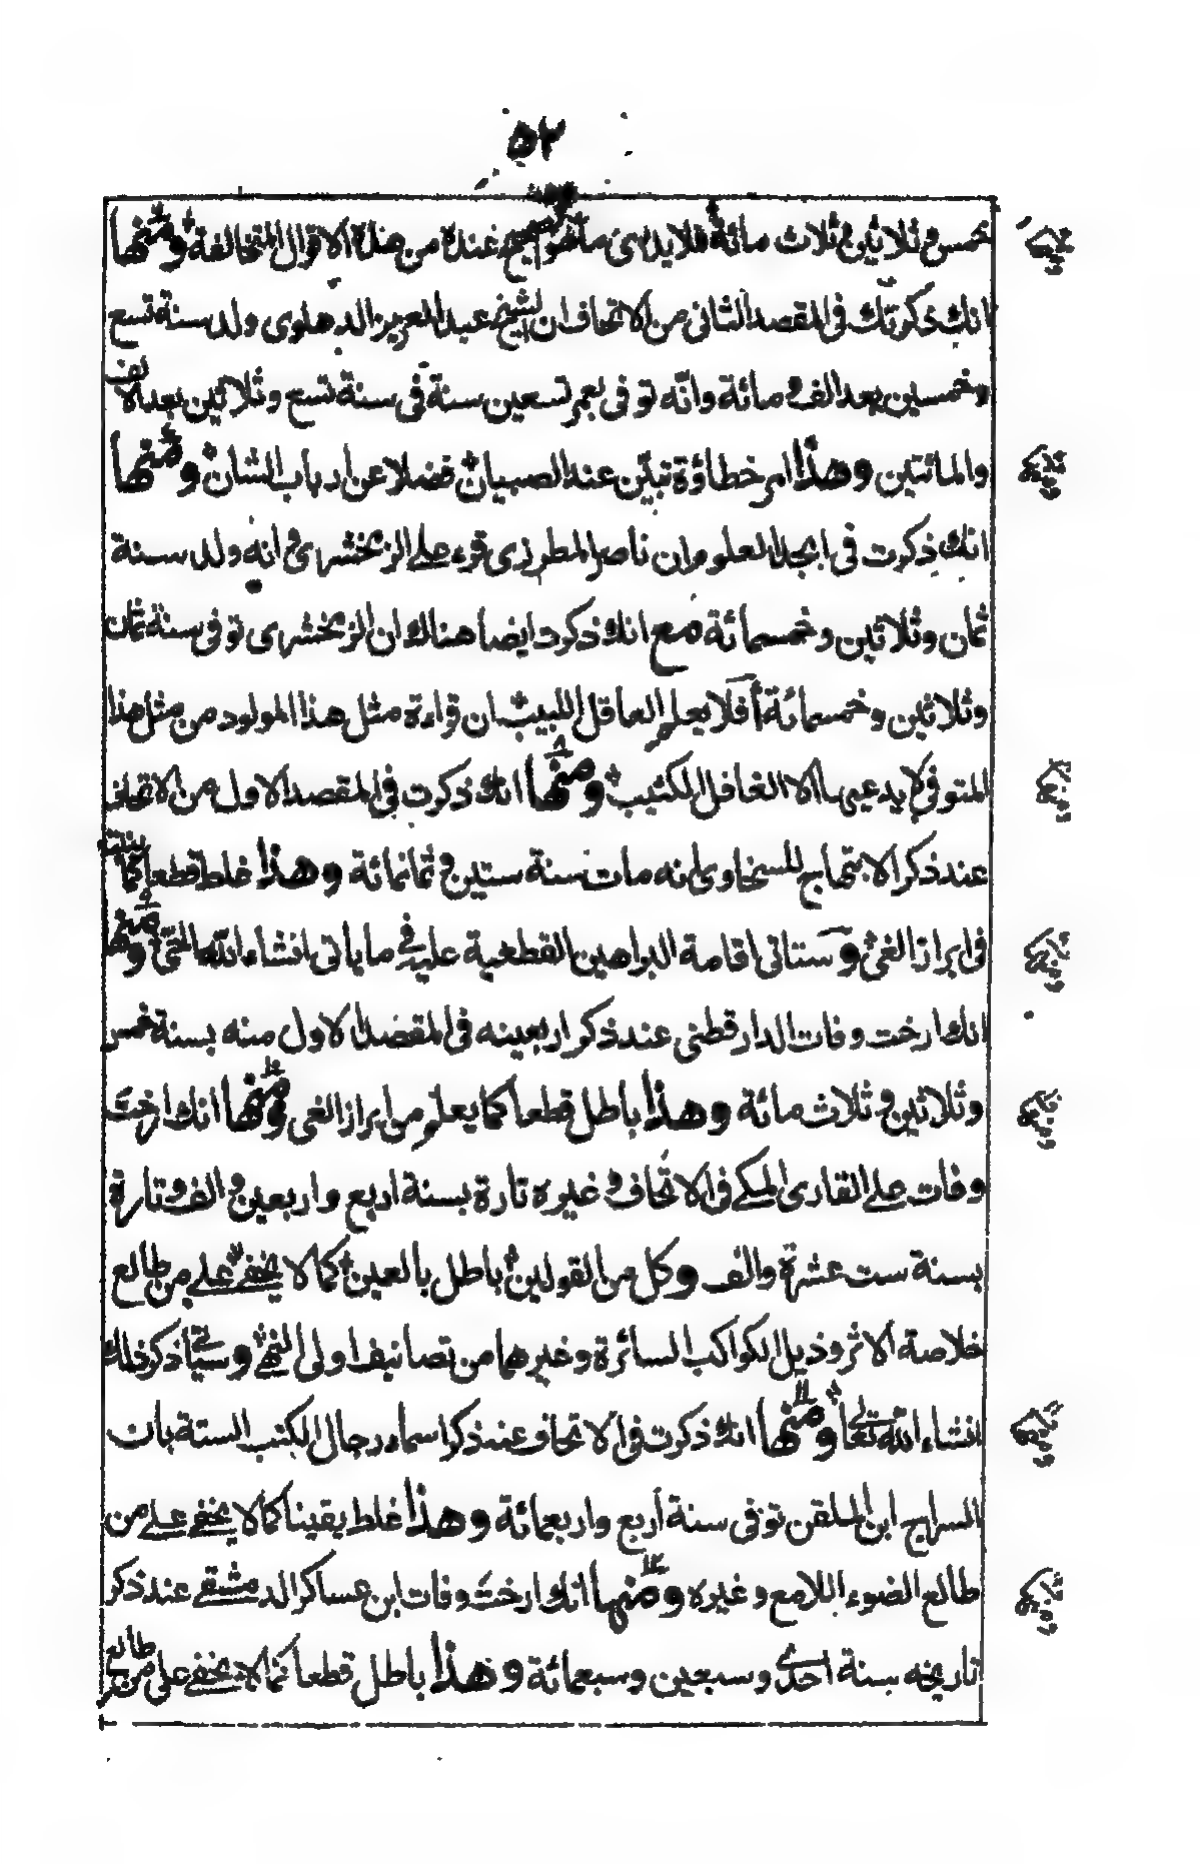 ٥٢
خمس وثلاثين وثلاث مائة فلا يدرى ما هو الصحيح عنده من هذه الاقوال المتخالفة ومنها
انك ذكرت فى المقصد الثانى من الاتحاف ان الشيخ عبد العزيز الدهلوى ولد سنة تسع
وخمسين بعد الف ومائة وانه توفى بعمر تسعين سنة فى سنة تسع وثلاثين بعد الالف
والمائتين وهذا امر خطاؤه تبين عند الصبيان فضلا عن ارباب الشان ومنها
انك ذكرت فى ابجد العلوم ان ناصر المطرزى قرء على الزمخشرى وانه ولد سنة
ثمان وثلاثين وخمسمائة مع انك ذكرت ايضا هناك ان الزمخشرى توفى سنة ثمان
وثلاثين وخمسمائة أفلا يعلم العاقل اللبيب ان قراءة مثل هذا المولود من مثل هذا
المتوفى لا يدعيها الا الغافل الكئيب ومنها ٨ انك ذكرت فى المقصد الاول من الاتحاف
عند ذكر الابتهاج للسخاوى انه مات سنة ستين وثمانمائة وهذا غلط قطعا كما بينته
فى ابراز الغى وستاتى اقامة البراهين القطعية عليه فى ما ياتى انشاء الله المتين ومنها ٩
انك ارخت وفات الدارقطنى عند ذكر اربعينه فى المقصد الاول منه بسنة خمس
وثلاثين وثلاث مائة وهذا باطل قطعا كما يعلم من ابراز الغى ومنها ١٠ انك ارخت
وفات على القارى المكى فى الاتحاف وغيره تارة بسنة اربع واربعين والف وتارة
بسنة ست عشرة والف وكل من القولين باطل بالعين كما لا يخفى على من طالع
خلاصة الاثر وذيل الكواكب السائرة وغيرهما من تصانيف اولى النهى وسيأتى ذكر ذلك
انشاء الله تعالى ومنها ١١ انك ذكرت فى الاتحاف عند ذكر اسماء رجال الكتب الستة بان
السراج ابن الملقن توفى سنة أربع واربعمائة وهذا غلط يقينا كما لا يخفى على من
طالع الضوء اللامع وغيره ومنها ١٢ انك ارخت وفات ابن عساكر الدمشقى عند ذكر
تاريخه بسنة احدى وسبعين وسبعمائة وهذا باطل قطعا كما لا يخفى على من طالع